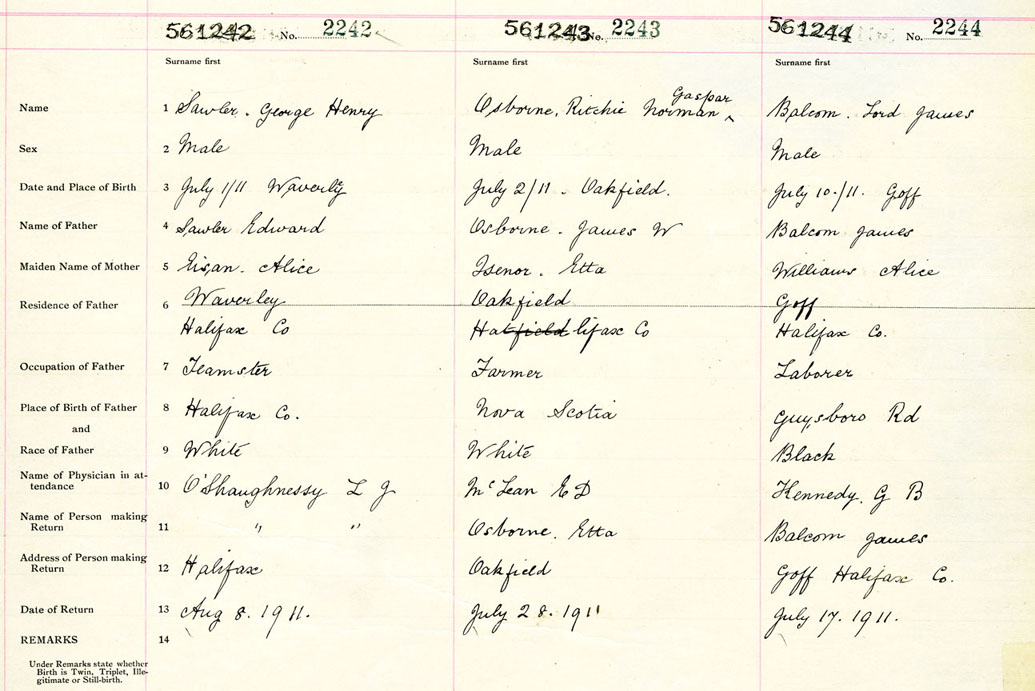 561242 No. 2242 561243 No. 2243 561244 No. 2244
Surname first Surname first Surname first
Gaspar
Name 1 Sawler. George Henry Osborne, Ritchie Norman ‸ Balcom. Lord James
Sex 2 Male Male Male
Date and Place of Birth 3 July 1/11 Waverly July 2/11 - Oakfield. July 10./11. Goff
Name of Father 4 Sawler Edward Osborne. James W Balcom James
Maiden Name of Mother 5 Eisan. Alice Isenor. Etta Williams Alice
Residence of Father 6 Waverley Oakfield Goff
Halifax Co Hatfield lifax Co Halifax Co.
Occupation of Father 7 Teamster Farmer Laborer
Place of Birth of Father 8 Halifax Co. Nova Scotia Guysboro Rd
and
Race of Father 9 White White Black
Name of Physician in at-
tendance 10 O'Shaughnessy L J McLean E D Kennedy. G B
Name of Person making
Return 11 " " Osborne. Etta Balcom James
Address of Person making
Return 12 Halifax Oakfield Goff Halifax Co.
Date of Return 13 Aug 8. 1911. July 28. 1911 July 17. 1911.
REMARKS 14
Under Remarks state whether
Birth is Twin, Triplet, Ille-
gitimate or Still-birth.